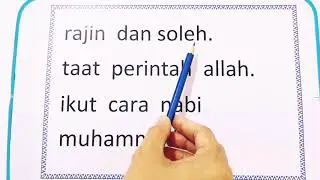 rajin dan soleh.
taat perintah allah.
ikut cara nabi